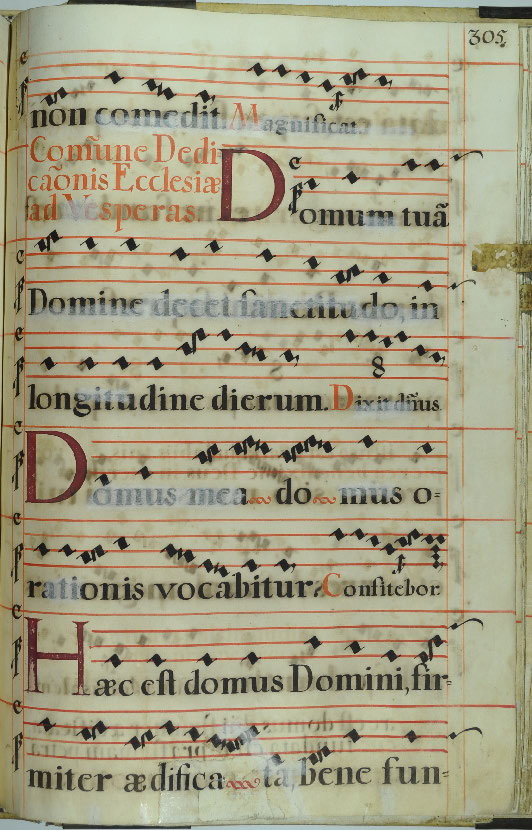 305.
non comedit. Magnificat.
Com̃une Dedi-
cãonis Ecclesiæ
ad Vesperas.
Domum tuã
Domine decet sanctitudo, in
longitudine dierum. Dixit dñus
8
Domus mea domus o=
rationis vocabitur. Confitebor.
Hæc est domus Domini, fir=
miter ædifica ta, bene fun=